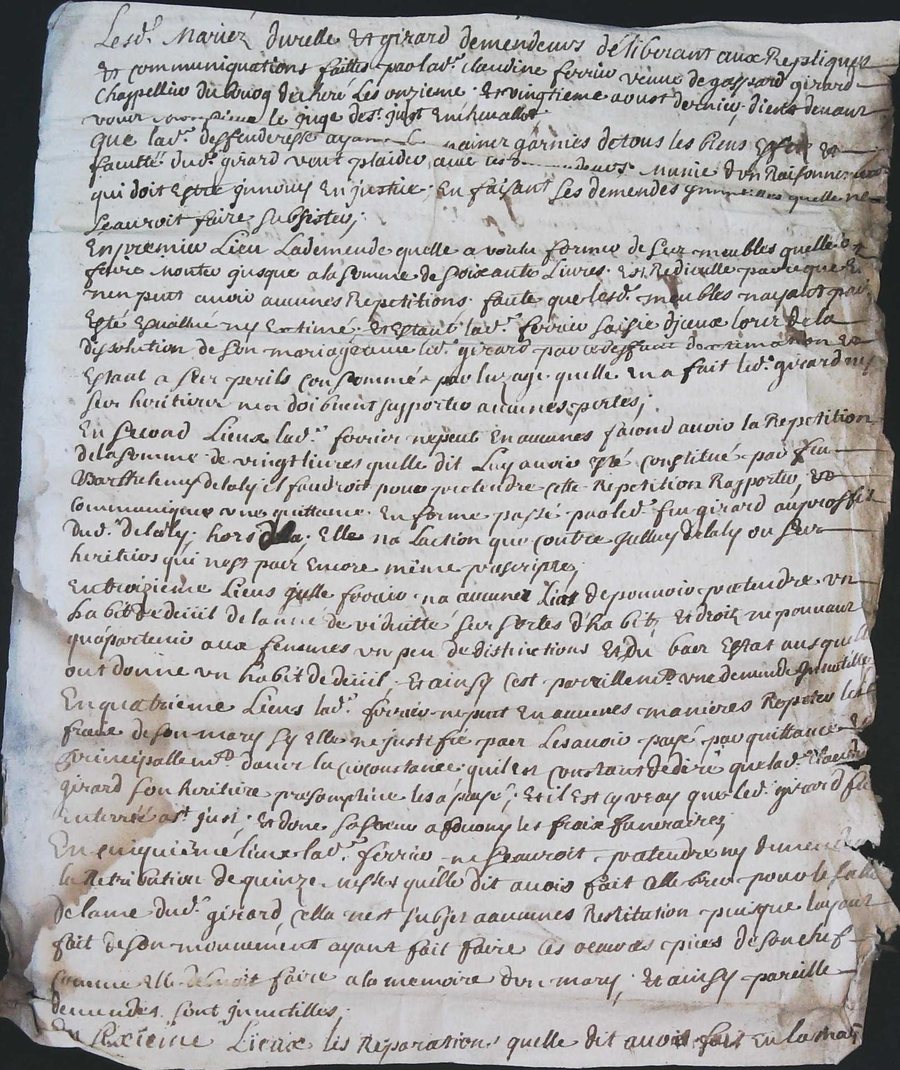 Lesd. Mariéz durelle Et girard demendeurs déliberant aux Repliques
Et communiquations faittes par lad. claudine ferrier veuve de gaspard girard
Chappellier du Les onzieme Et vingtieme aoust dernier, dient devant
vous le juge de st. just En chevallet
que lad. deffenderesse garnies de tous les biens Et
faculté dud. girard veut plaider avec munie d'un Raisonnement
qui doit Estre jnconu En justice, En faisant Les demendes jnnutilles quelle ne
scauroit faire subsister;
En premier Lieu La demende quelle a voulu former de ses meubles quelle
faire monter jusque a la somme de soixante Livres Est Rediculle parceque
n'en peut avoir aucunes Repetitions faute que lesd. meubles n'ayant pas
Esté Evallué ny Estimé, Et Estant lad. ferrier saisie d'jceux lors de la
dissolution de son mariage avec led. girard par ce deffaut d'estimation
Estant a ses perils consommés par luzage quelle En a fait led. girard ny
ses heritiers n'en doibvent supporter aucunes pertes;
En second Lieux lad. ferrier ne peut En aucunes facond avoir la Repetition
de la somme de vingt livres quelle dit Luy avoir Esté constitué par feu
Barthelemy delaly il faudroit pour pretendre cette Repetition Rapporter, Et
Communiquer une quittance En forme passé par led. feu girard au proffit
dud. delaly, hors de la, Elle n'a L'action que contre delaly ou ses
heritiers qui n'est pas Encore même prescripte;
En troizieme Liens ferrier n'a aucunes de pouvoir pretendre un
habit de deüil de l'anné de viduitté ses sortes d'habits Et droit ne pouvant
qu'apartenir aux femmes un peu de distinctions Et du bas Estat ausquelle
ont donne un habit de deüil Et ainsy c'est pareillemt. une demende jnnutille
En quatrieme Liens lad. ferrier ne peut En aucunes manieres Repeter les
fraix de son mary sy Elle ne justifie pas Les avoir payé par quittance
principallemt. dans la circonstance quil est constant de dire que lad. Claudine
girard son heritiere presomptive les a payé; Et il Est sy vray que led. girard fut
Enterré a st. just, Et donc sa soeur a fourny les fraix funeraires;
En cinquiéme lieux lad. ferrier ne scauroit pretendre ny demender
la Retribution de quinze messes quelle dit avoir fait cellebrer pour le salut
de l'ame dud. girard, cella n'est subjet a aucunes Restitution puisque l'ayant
fait de son mouvement ayant fait faire ces oeuvres pies de son chef
comme Elle debvoit faire a la memoire d'un mary, Et ainsy pareille
demendes sont jnnutilles.
En sixiéme Lieux les Reparations quelle dit avoir fait En la